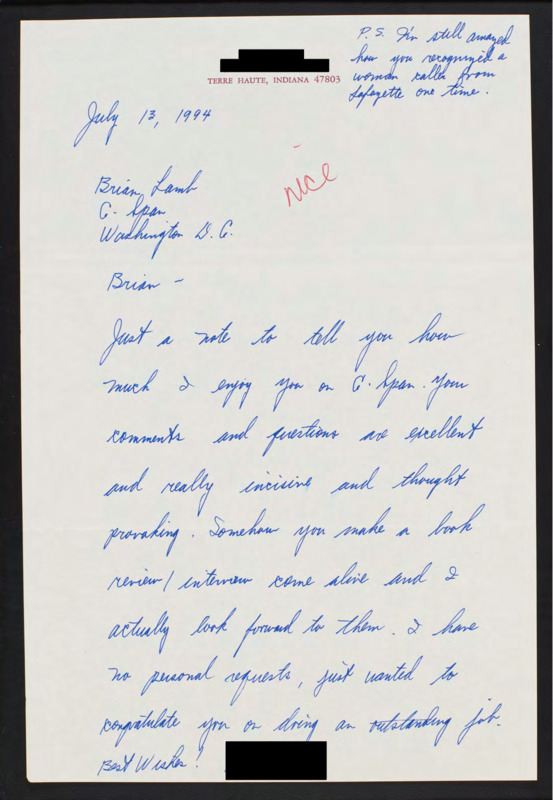 P.S. I'm still amazed
how you recognized a
woman caller from
Lafayette one time.
TERRE HAUTE, INDIANA 47803
July 13, 1994
nice
Brian Lamb
C-Span
Washington D.C.
Brian -
Just a note to tell you how
much I enjoy you on C-Span. Your
comments and questions are excellent
and really incisive and thought
provoking. Somehow you make a book
review/interview come alive and I
actually look forward to them. I have
no personal requests, just wanted to
congratulate you on doing an outstanding job.
Best Wishes!